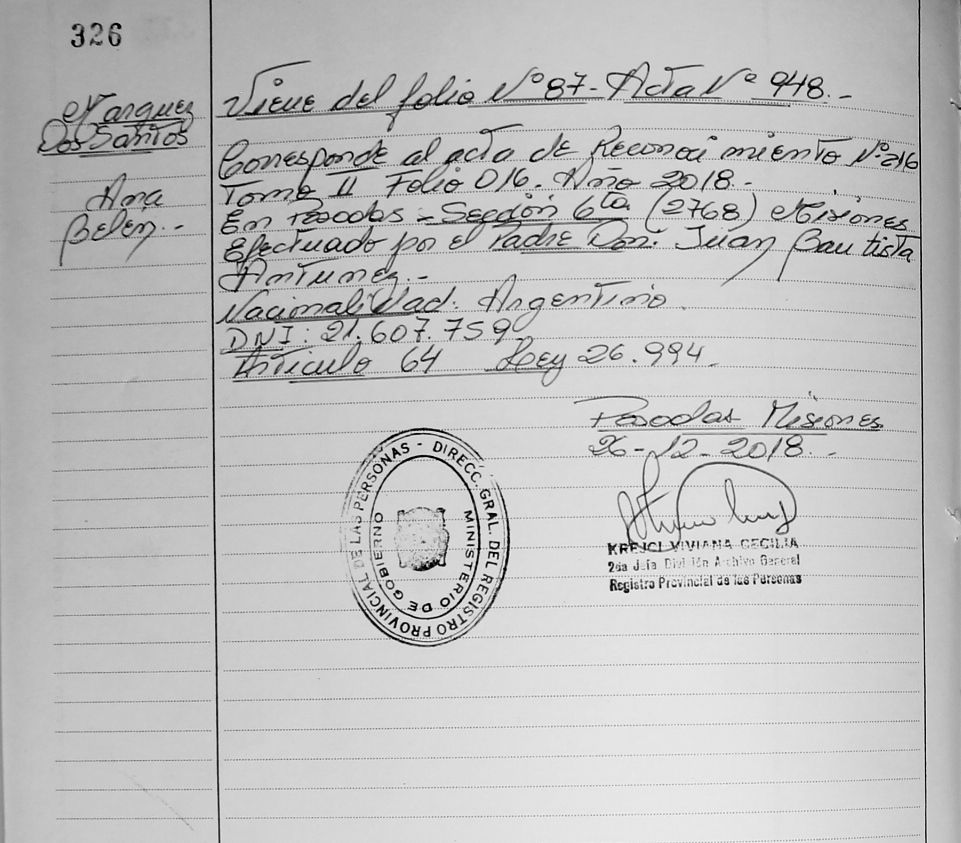 326
Marquez
Dos Santos
Ana
Belen.-
Viene del folio Nº 87- Acta Nº 948.-
Corresponde al acta de Reconocimiento Nº 216
Tomo II Folio 016. Año 2018.-
En Posadas - Sección 6ta (2768) Misiones
Efectuado por el Padre Don: Juan Bautista
Antunez.-
Nacionalidad: Argentino
DNI: 21.607.759
Articulo 64 Ley 26.994.
Posadas Misiones
26-12-2018.-
KREJCI VIVIANA CECILIA
2da Jefa División Archivo General
Registro Provincial de las Personas
DIRECC. GRAL. DEL REGISTRO PROVINCIAL DE LAS PERSONAS -
MINISTERIO DE GOBIERNO